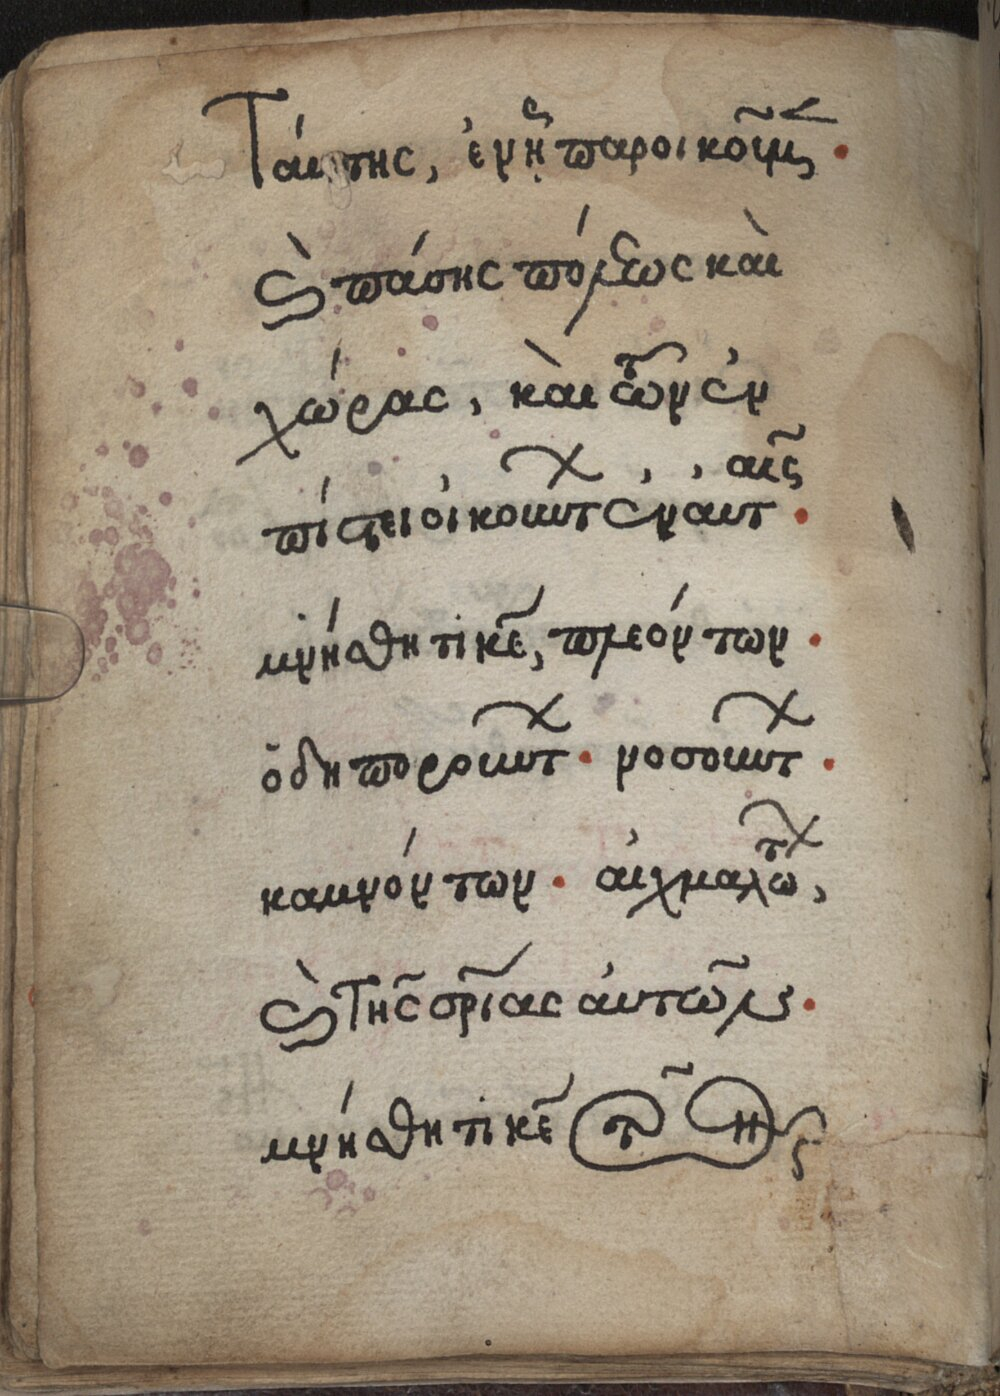 Ταύτης, ἐν ἧ παροικοῦμ(εν).
ϗ πάσης πόλεως καὶ
χώρας, καὶ τῶν ἐν
πίστει οἰκούντ(ων) ἐν αὐταῖς.
μνήσθητι κ̅ε̅, πλεόντων.
ὁδηπορούντ(ων). νοσούντ(ων).
καμνόντων. αἰχμαλώτ(ων),
ϗ τῆς σ̅ρ̅ίας αὐτῶν.
μνήσθητι κ̅ε̅